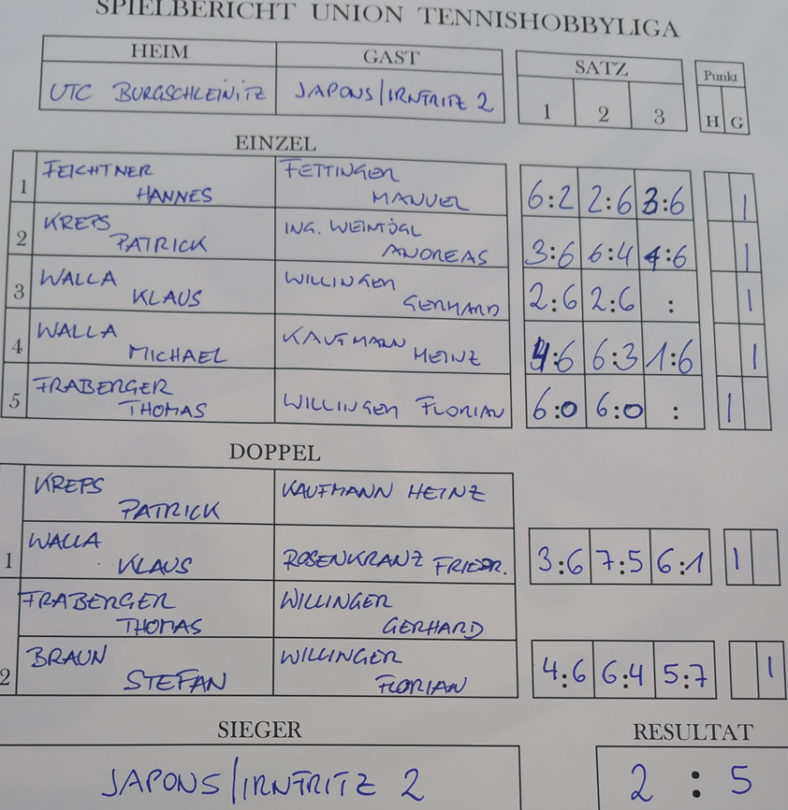 SPIELBERICHT UNION TENNISHOBBYLIGA
HEIM GAST SATZ Punkt
UTC BURGSCHLEINITZ JAPONS/IRNFRITZ 2 1 2 3 H G
EINZEL
1 FEICHTNER HANNES FETTINGER MANUEL 6:2 2:6 3:6 1
2 KREPS PATRICK ING. WEINTÖGL ANDREAS 3:6 6:4 4:6 1
3 WALLA KLAUS WILLINGER GERHARD 2:6 2:6 : 1
4 WALLA MICHAEL KAUFMANN HEINZ 4:6 6:3 1:6 1
5 FRABERGER THOMAS WILLINGER FLORIAN 6:0 6:0 : 1
DOPPEL
KREPS PATRICK KAUFMANN HEINZ
1 WALLA KLAUS ROSENKRANZ FRIEDR. 3:6 7:5 6:1 1
FRABERGER THOMAS WILLINGER GERHARD
2 BRAUN STEFAN WILLINGER FLORIAN 4:6 6:4 5:7 1
SIEGER RESULTAT
JAPONS/IRNFRITZ 2 2 : 5